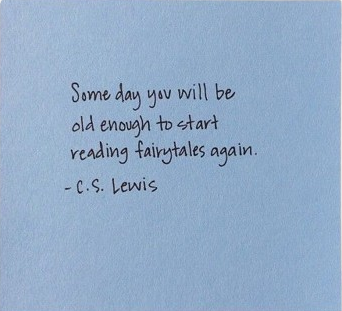 Some day you will be
old enough to start
reading fairytales again.
- C.S. Lewis